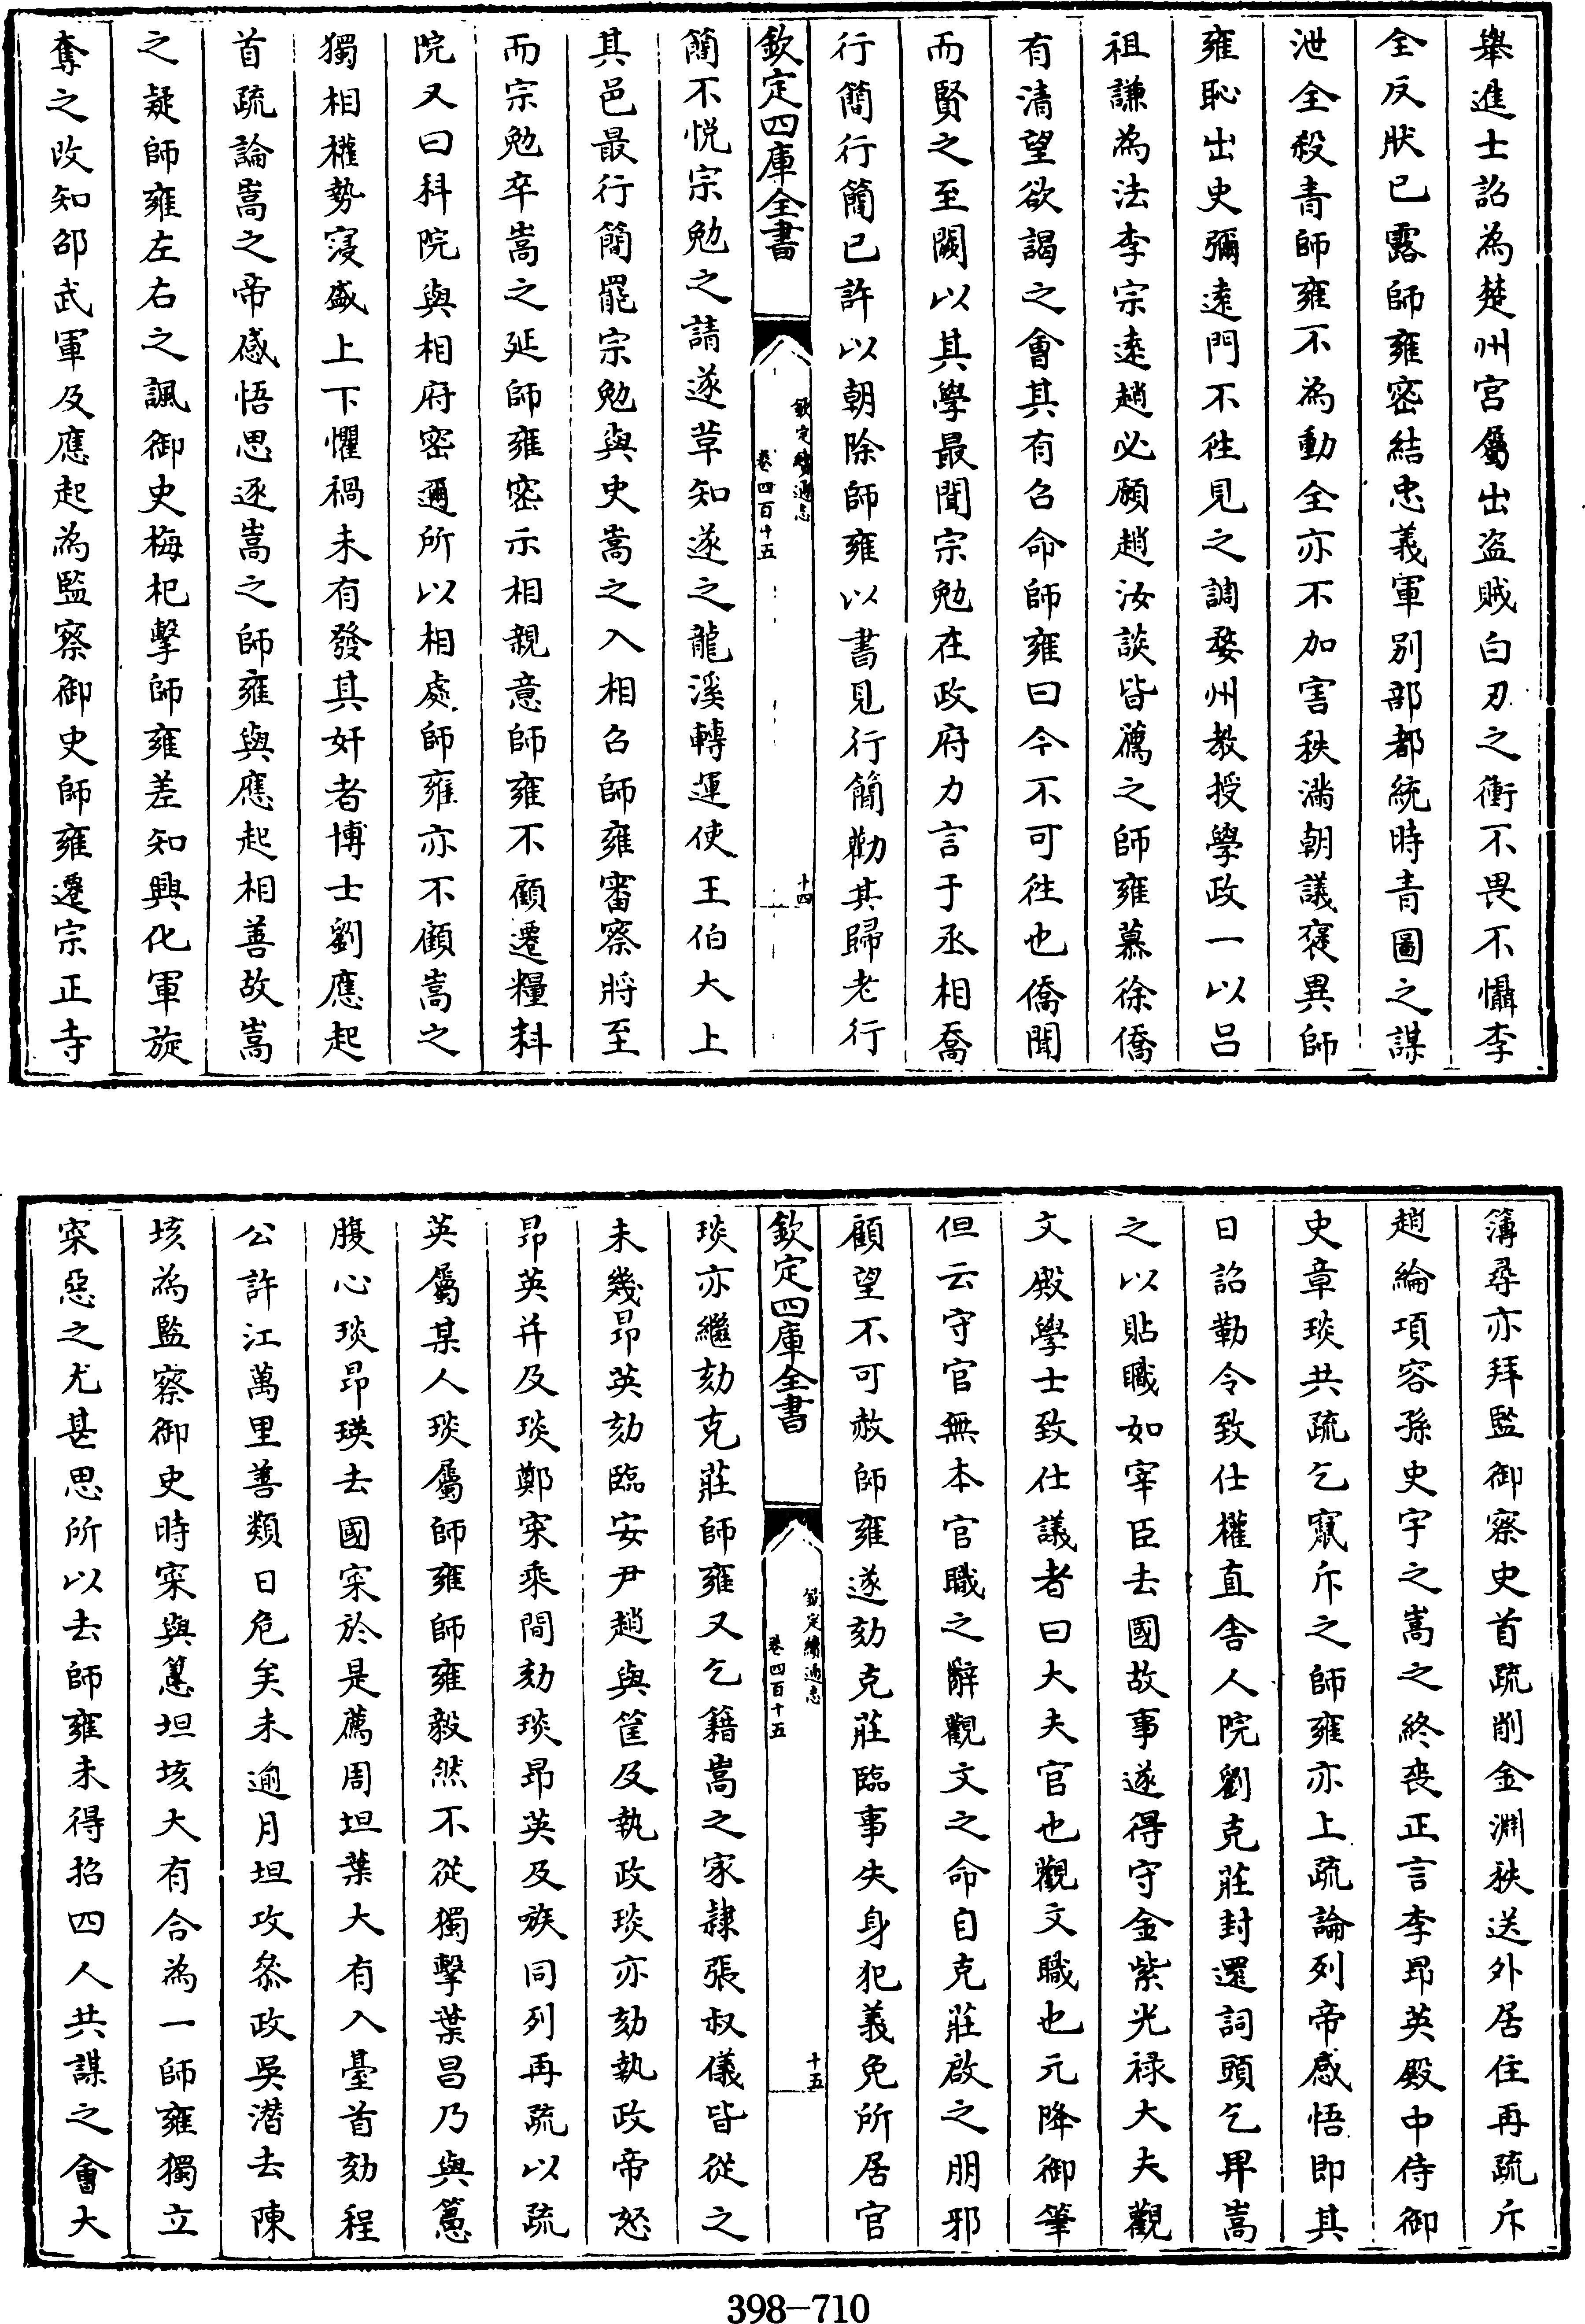 舉進士詔為楚州宮屬出盗賊白刃之衝不畏不懾李
全反狀已露師雍密結忠義軍别部都統時青圖之謀
泄全殺青師雍不為動全亦不加害秩滿朝議褒異師
雍恥出史彌遠門不徃見之調婺州教授學政一以吕
祖謙為法李宗逺趙必願趙汝談皆薦之師雍慕徐僑
有清望欲謁之㑹其有召命師雍曰今不可徃也僑聞
而賢之至闕以其學最聞宗勉在政府力言于丞相喬
行簡行簡已許以朝除師雍以書見行簡勸其歸老行
欽定四庫全書
欽定續通志
卷四百十五
十四
簡不悦宗勉之請遂草知遂之龍溪轉運使王伯大上
其邑最行簡罷宗勉與史嵩之入相召師雍審察將至
而宗勉卒嵩之延師雍密示相親意師雍不顧遷糧料
院又曰科院與相府密邇所以相處師雍亦不顧嵩之
獨相權勢寖盛上下懼禍未有發其奸者博士劉應起
首疏論嵩之帝感悟思逐嵩之師雍與應起相善故嵩
之疑師雍左右之諷御史梅杞擊師雍差知興化軍旋
奪之改知邵武軍及應起為監察御史師雍遷宗正寺
簿尋亦拜監御察史首疏削金淵秩送外居住再疏斥
趙綸項容孫史宇之嵩之終喪正言李昂英殿中侍御
史章琰共疏乞竄斥之師雍亦上疏論列帝感悟即其
日詔勒令致仕權直舎人院劉克莊封還詞頭乞畀嵩
之以貼職如宰臣去國故事遂得守金紫光禄大夫觀
文殿學士致仕議者曰大夫官也觀文職也元降御筆
但云守官無本官職之辭觀文之命自克莊啟之朋邪
顧望不可赦師雍遂劾克莊臨事失身犯義免所居官
欽定四庫全書
欽定續通志
卷四百十五
十五
琰亦繼劾克莊師雍又乞籍嵩之家隷張叔儀皆從之
未幾昂英劾臨安尹趙與䈣及執政琰亦劾執政帝怒
昂英并及琰鄭寀乘間劾琰昂英及族同列再疏以疏
英屬某人琰屬師雍師雍毅然不從獨擊葉昌乃與𥲅
腹心琰昂瑛去國寀於是薦周坦葉大有入臺首劾程
公許江萬里善類日危矣未逾月坦攻叅政吳潛去陳
垓為監察御史時寀與𥲅坦垓大有合為一師雍獨立
寀惡之尤甚思所以去師雍未得招四人共謀之㑹大
398-710